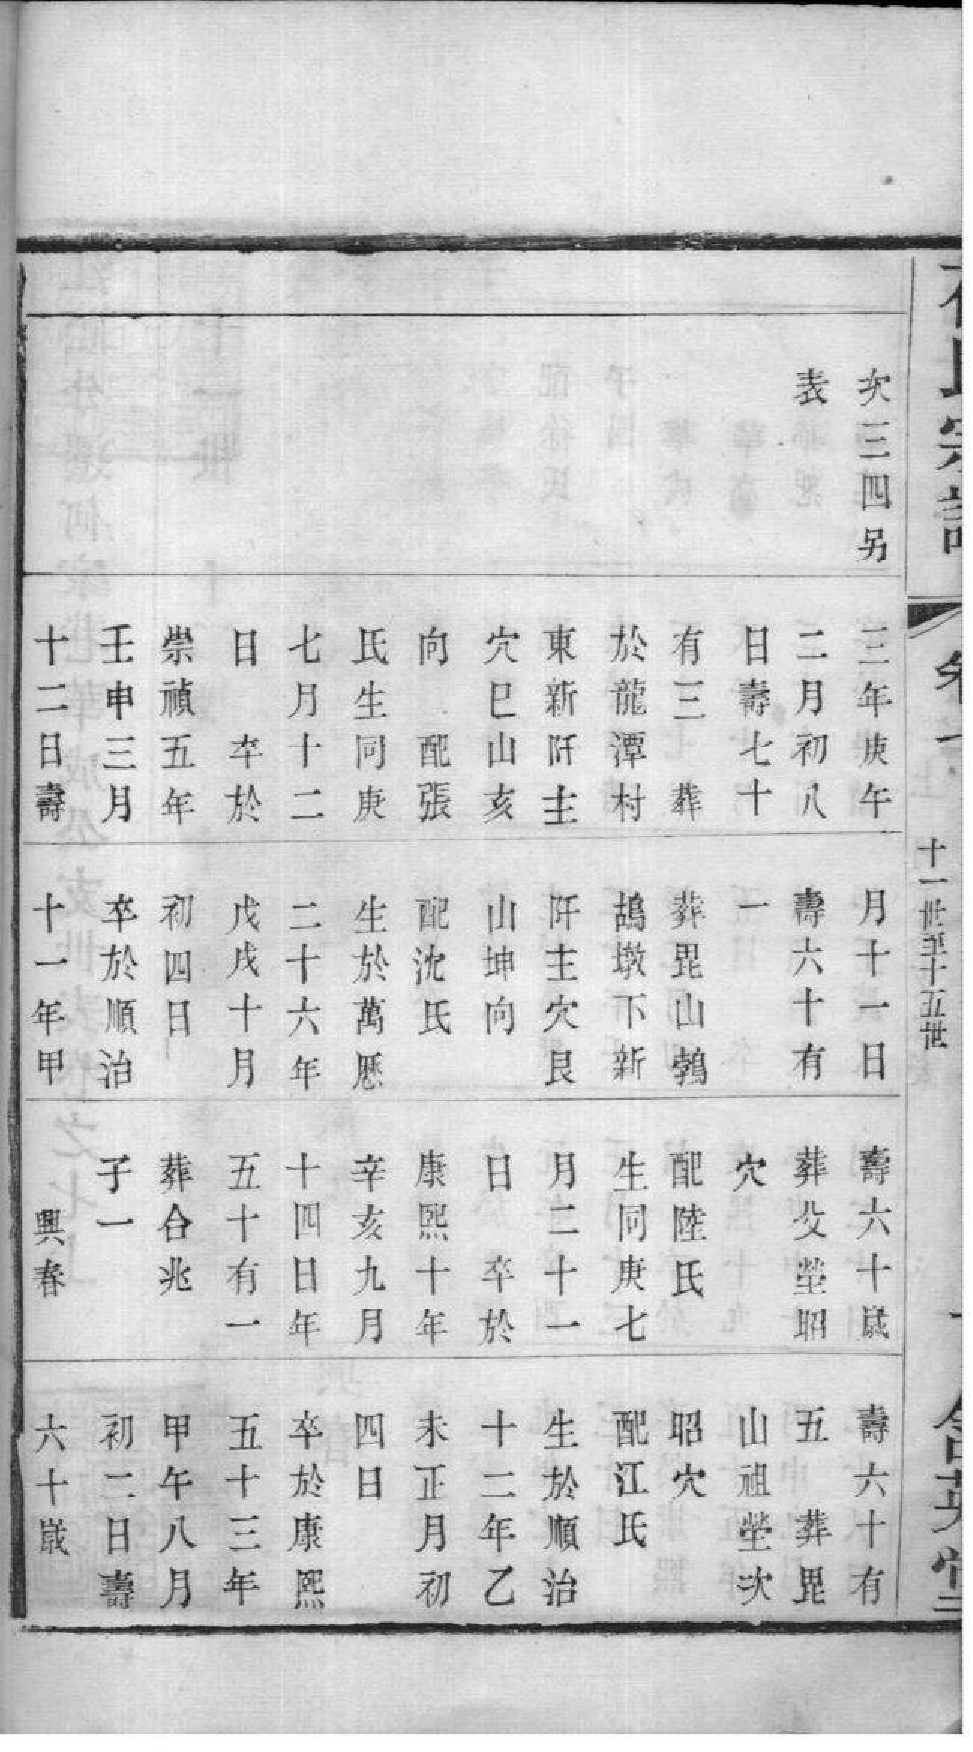 氏宗譜
卷
十一世至十五世
次三四另
表
三年庚午
二月初八
日壽七十
有三　葬
於龍潭村
東新阡主
穴巳山亥
向　配張
氏生同庚
七月十二
日　卒於
崇禎五年
壬申三月
十二日壽
月十一日
壽六十有
一
葬毘山鵓
鴣墩下新
阡主穴艮
山坤向
配沈氏
生於萬厯
二十六年
戊戌十月
初四日
卒於順治
十一年甲
壽六十歲
葬父塋昭
穴
配陸氏
生同庚七
月二十一
日　卒於
康熙十年
辛亥九月
十四日年
五十有一
葬合兆
子一
興春
壽六十有
五　葬毘
山祖塋次
昭穴
配江氏
生於順治
十二年乙
未正月初
四日
卒於康熙
五十三年
甲午八月
初二日壽
六十歲